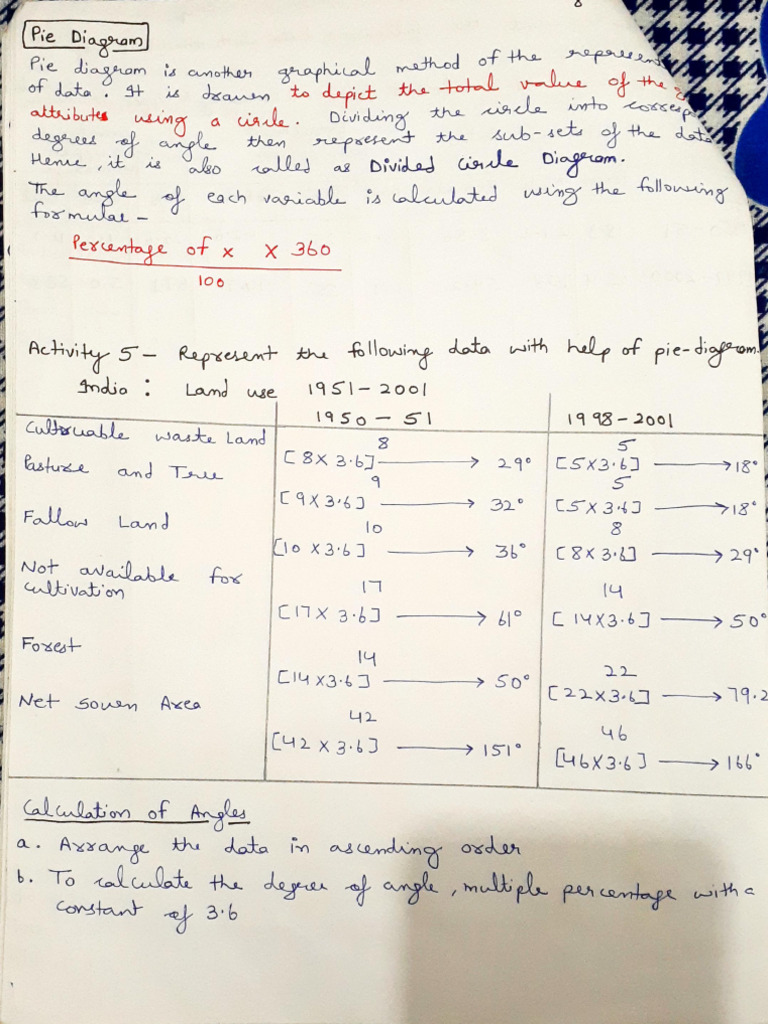 8
Pie Diagram
Pie diagram is another graphical method of the represen
of data. It is drawn to depict the total value of the
attributes using a circle. Dividing the circle into corresp
degrees of angle then represent the sub-sets of the data
Hence, it is also called as Divided Circle Diagram.
The angle of each variable is calculated using the following
formulae -
Percentage of x X 360
100
Activity 5 - Represent the following data with help of pie-diagram.
India : Land use 1951-2001
1950-51 1998-2001
Cultruable waste Land 8 5
[8X3.6] → 29° [5X3.6] → 18°
Pasture and Tree 9 5
[9X3.6] → 32° [5X3.6] → 18°
Fallow Land 10 8
[10X3.6] → 36° [8X3.6] → 29°
Not available for
cultivation 17 14
[17X3.6] → 61° [14X3.6] → 50°
Forest 14 22
[14X3.6] → 50° [22X3.6] → 79.2
Net sowen Area 42 46
[42X3.6] → 151° [46X3.6] → 166°
Calculation of Angles
a. Arrange the data in ascending order
b. To calculate the degree of angle, multiple percentage with a
constant of 3.6